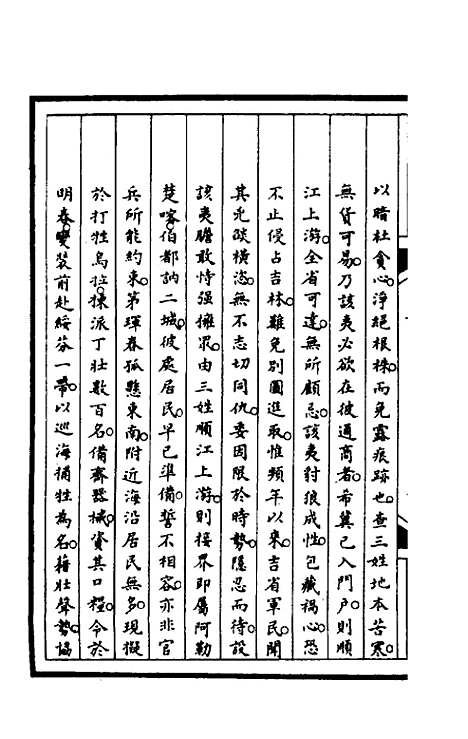 以暗杜貪心淨絕根株而免露痕跡也查三姓地本苦寒
無貨可易乃該夷必欲在彼通商者希冀已入門戶則順
江上游全省可達無所顧忌該夷豺狼成性包藏禍心恐
不止侵占吉林難免別圖進取惟頻年以來吉省軍民聞
其兇燄橫恣無不志切同仇委因限於時勢隱忍而待設
該夷膽敢恃强擁眾由三姓順江上游則接界即屬阿勒
楚喀伯都訥二城彼處居民早已準備誓不相容亦非官
兵所能約束第琿春孤懸東南附近海沿居民無多現擬
於打牲烏拉揀派丁壯數百名備齊器械資其口糧令於
明春變裝前赴綏芬一帶以巡海捕牲為名藉壯聲勢協